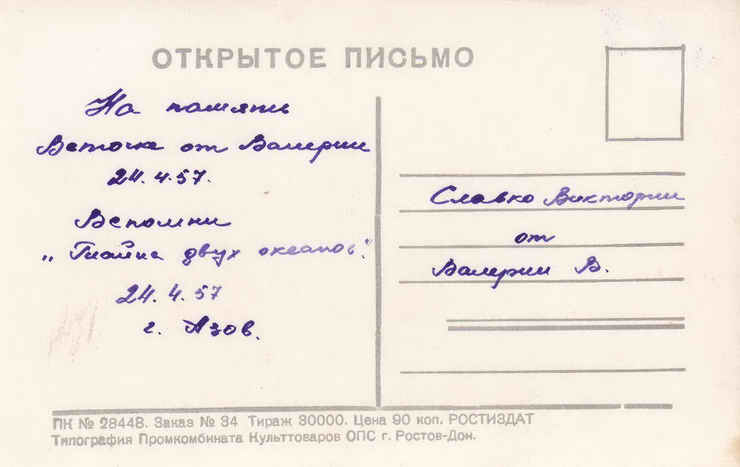 ОТКРЫТОЕ ПИСЬМО
На память
Веточке от Валерии
24.4.57.
Вспомни
„Тайна двух океанов".
24.4.57
г. Азов.
Славко Виктории
от
Валерии В.
ПК № 28448. Заказ № 34 Тираж 30000. Цена 90 коп. РОСТИЗДАТ
Типография Промкомбината Культтоваров ОПС г. Ростов-Дон.